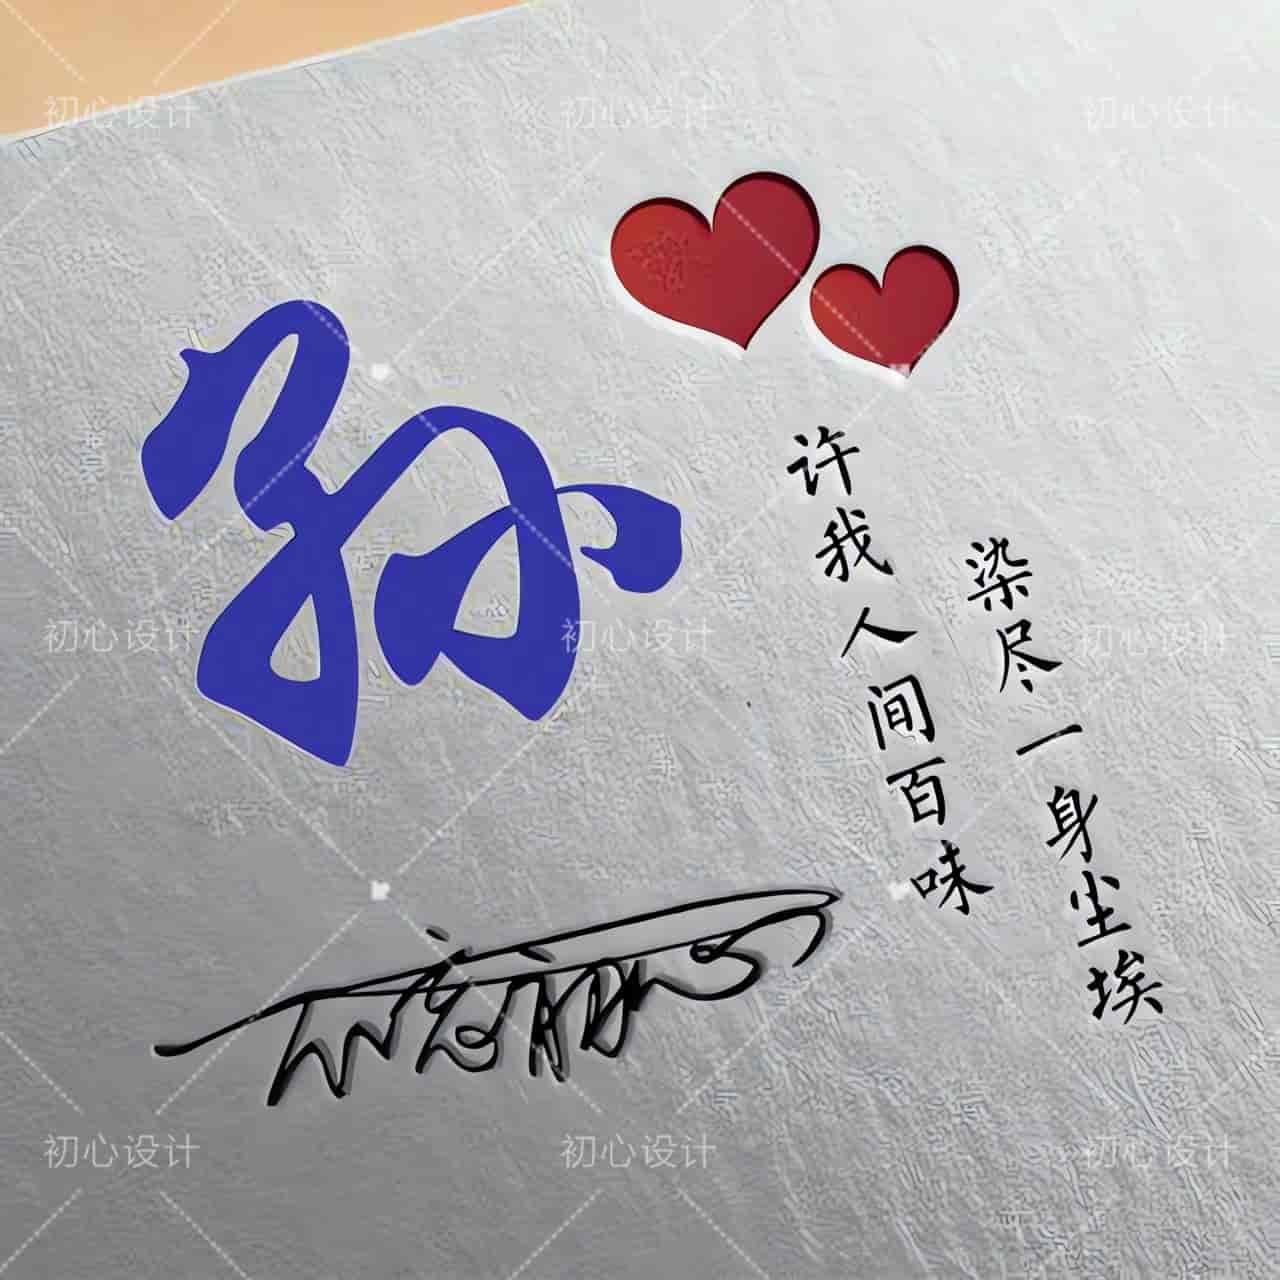 孙
许我人间百味
染尽一身尘埃
初心设计
初心设计
初心设计
初心设计
初心设计
初心设计
初心设计
初心设计
初心设计